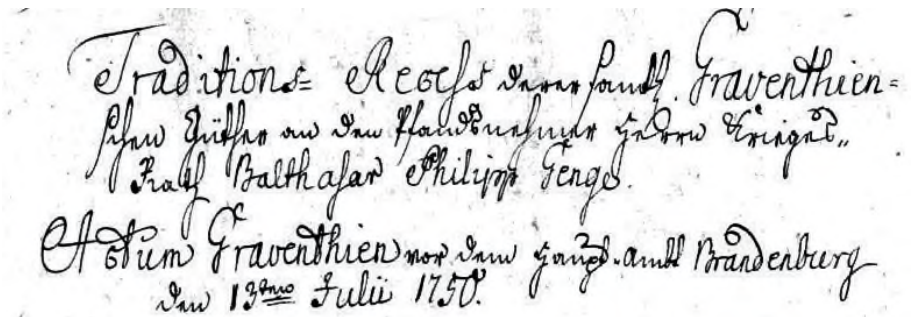 Traditions= Recess derer sämtl. Graventhien=
schen Güther an den Pfandsnehmer Herrn Krieges„
Rath Balthasar Philipp Genge.
Actum Graventhien vor dem Haupt-Ambt Brandenburg
den 13ten Julii 1750.